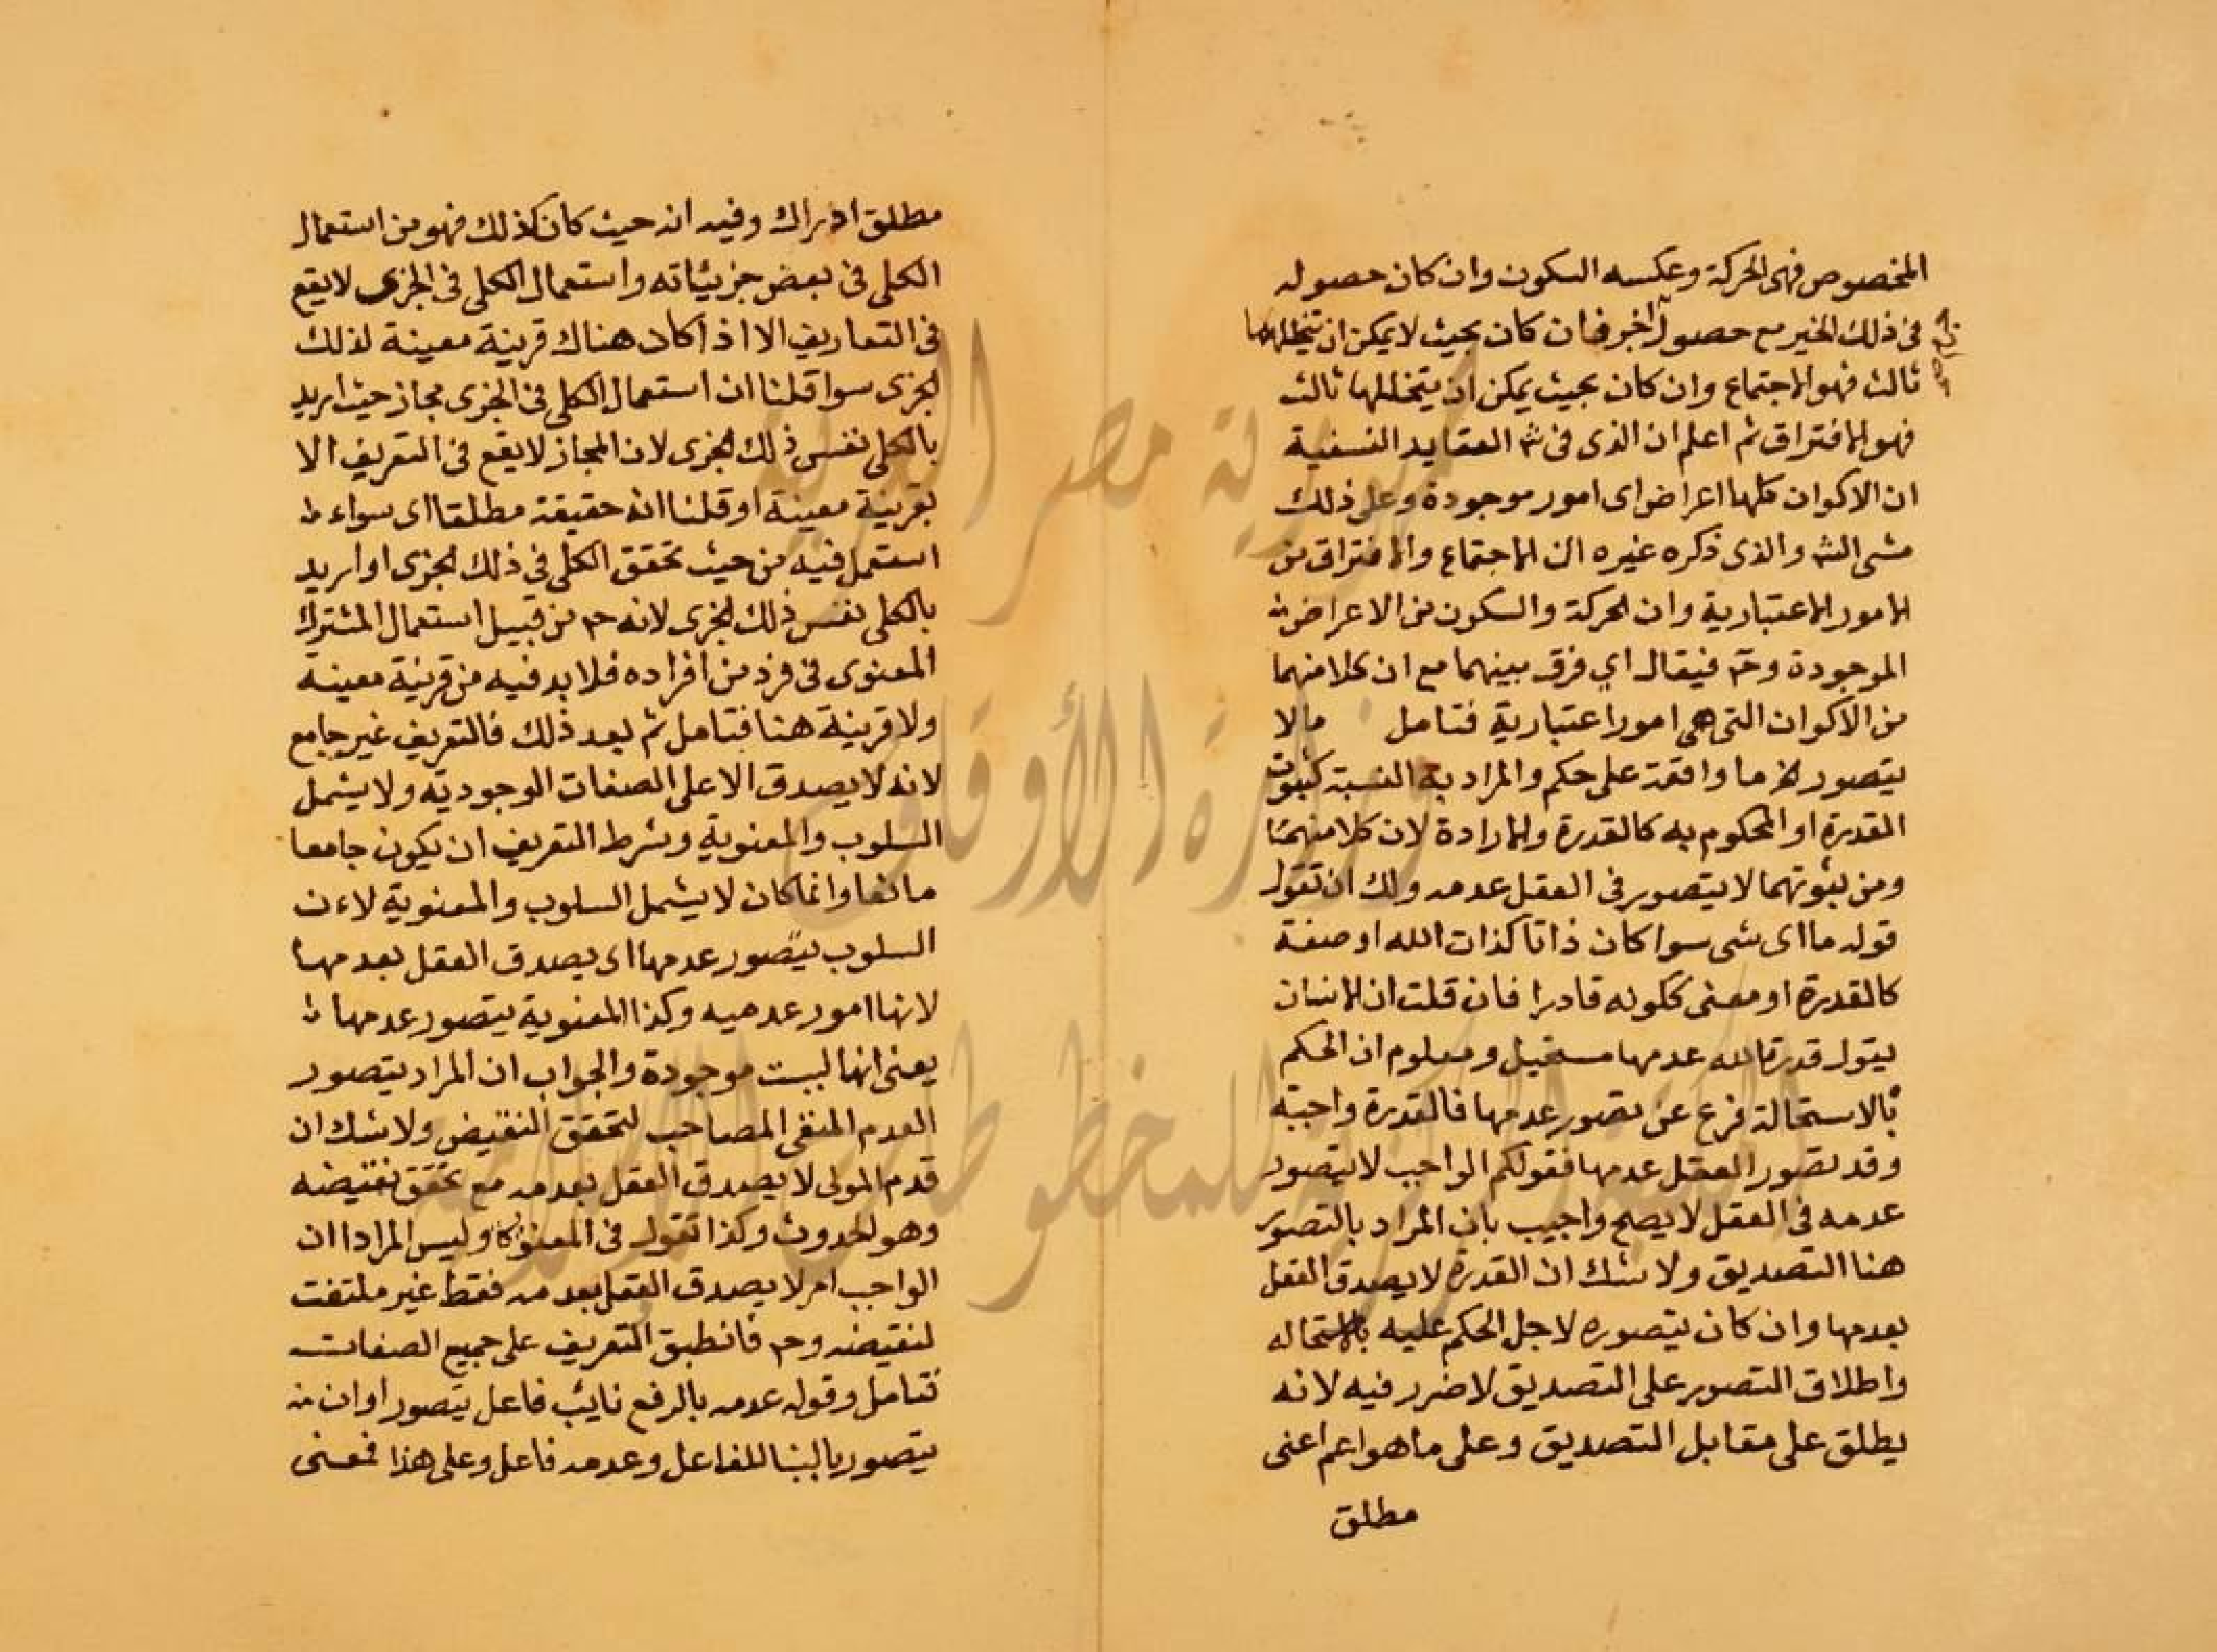 المخصوص فهى الحركة وعكسه السكون وان كان حصوله
فى ذلك الحيز مع حصول آخر فان كان بحيث لا يمكن ان يتخللهما
ثالث فهو الاجتماع وان كان بحيث يمكن ان يتخللهما ثالث
فهو الافتراق ثم اعلم ان الذى فى شه العقايد النسفية
ان الاكوان كلها اعراض اى امور موجودة وعلى ذلك
مشى الشه والذى ذكره غيره ان الاجتماع والافتراق من
الامور الاعتبارية وان الحركة والسكون من الاعراض
الموجودة وحه فيقال اي فرق بينهما مع ان كلا منهما
من الاكوان التى هى امور اعتبارية فتامل ما لا
يتصور الخ ما واقعة على حكم والمراد به النسبة كثبوت
القدرة او المحكوم به كالقدرة والارادة لان كلا منهما
ومن ثبوتهما لا يتصور فى العقل عدمه ولك ان تقول
قوله ما اى شى سوا كان ذاتا كذات الله او صفة
كالقدرة او معنى ككونه قادرا فان قلت ان الانسان
يقول قدرة الله عدمها مستحيل ومعلوم ان الحكم
بالاستحالة فرع عن تصور عدمها فالقدرة واجبة
وقد تصور العقل عدمها فقولكم الواجب لا يتصور
عدمه فى العقل لا يصح واجيب بان المراد بالتصور
هنا التصديق ولا شك ان القدرة لا يصدق العقل
بعدمها وان كان يتصوره لاجل الحكم عليه بالاستحاله
واطلاق التصور على التصديق لا ضرر فيه لانه
يطلق على مقابل التصديق وعلى ما هو اعم اعنى
مطلق
مطلق ادراك وفيه انه حيث كان كذلك فهو من استعمال
الكلى فى بعض جزيئاته واستعمال الكلى فى الجزى لا يقع
فى التعاريف الا اذا كان هناك قرينة معينة لذلك
الجزى سوا قلنا ان استعمال الكلى فى الجزى مجاز حيث اريد
بالكلى نفس ذلك الجزى لان المجاز لا يقع فى التعريف الا
بقرينة معينة او قلنا انه حقيقة مطلقا اى سواء
استعمل فيه من حيث تحقق الكلى في ذلك الجزى او اريد
بالكلى نفس ذلك الجزى لانه حه من قبيل استعمال المشترك
المعنوى فى فرد من افراده فلا بد فيه من قرينة معينة
ولا قرينة هنا فتامل ثم بعد ذلك فالتعريف غير جامع
لانه لا يصدق الا على الصفات الوجودية ولا يشمل
السلوب والمعنوية وشرط التعريف ان يكون جامعا
مانعا وانما كان لا يشمل السلوب والمعنوية لاءن
السلوب يتصور عدمها اى يصدق العقل بعدمها
لانها امور عدميه وكذا المعنوية يتصور عدمها
يعنى انها ليست موجودة والجواب ان المراد يتصور
العدم المنفى المصاحب لتحقق النقيض ولا شك ان
قدم المولى لا يصدق العقل بعدمه مع تحقق نقيضه
وهو الحدوث وكذا تقول فى المعنوية وليس المراد ان
الواجب امر لا يصدق العقل بعدمه فقط غير ملتفت
لنقيضه وحه فانطبق التعريف على جميع الصفات
فتامل وقوله عدمه بالرفع نايب فاعل يتصور او ان
يتصور بالبنا للفاعل وعدمه فاعل وعلى هذا فمعنى
جمهورية مصر العربية
وزارة الأوقاف
المكتبة المركزية للمخطوطات الإسلامية